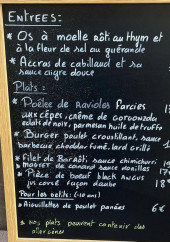 Entrees:
* Os à moelle rôti au thym et
à la fleur de sel au guérande
* Accras de cabillaud et sa
sauce aigre douce
Plats:
* Poêlée de ravioles Farcies
aux cèpes, crème de gorgonzola
éclats de noix, parmesan huile de truffe
* Burger poulet croustillant, sauce
barbecue cheddar fumé, lard grillé
* Filet de Bar rôti, sauce chimichurri
* magret de canard sauce morilles 17
* Pièce de boeuf black Angus
mi cuire façon daube 18
Pour les petits: (-10 ans)
* Aiguillettes de poulet panées 6€
* nos plats peuvent contenir des
allergènes